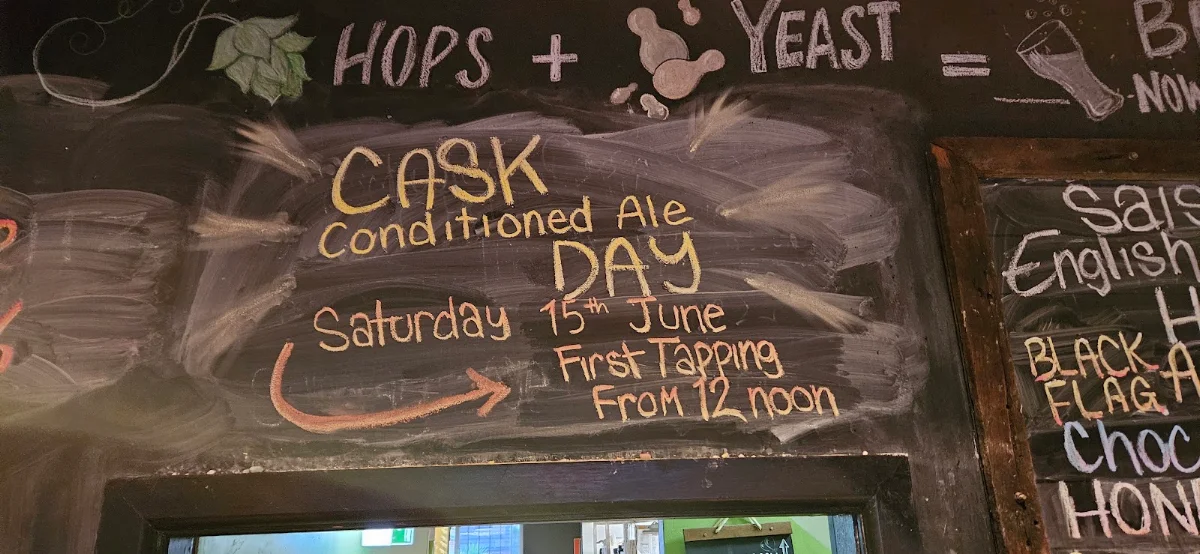 HOPS + YEAST =
NOW
CASK
Conditioned Ale
DAY
Saturday 15th June
First Tapping
From 12 noon
English
BLACK
FLAG
HON